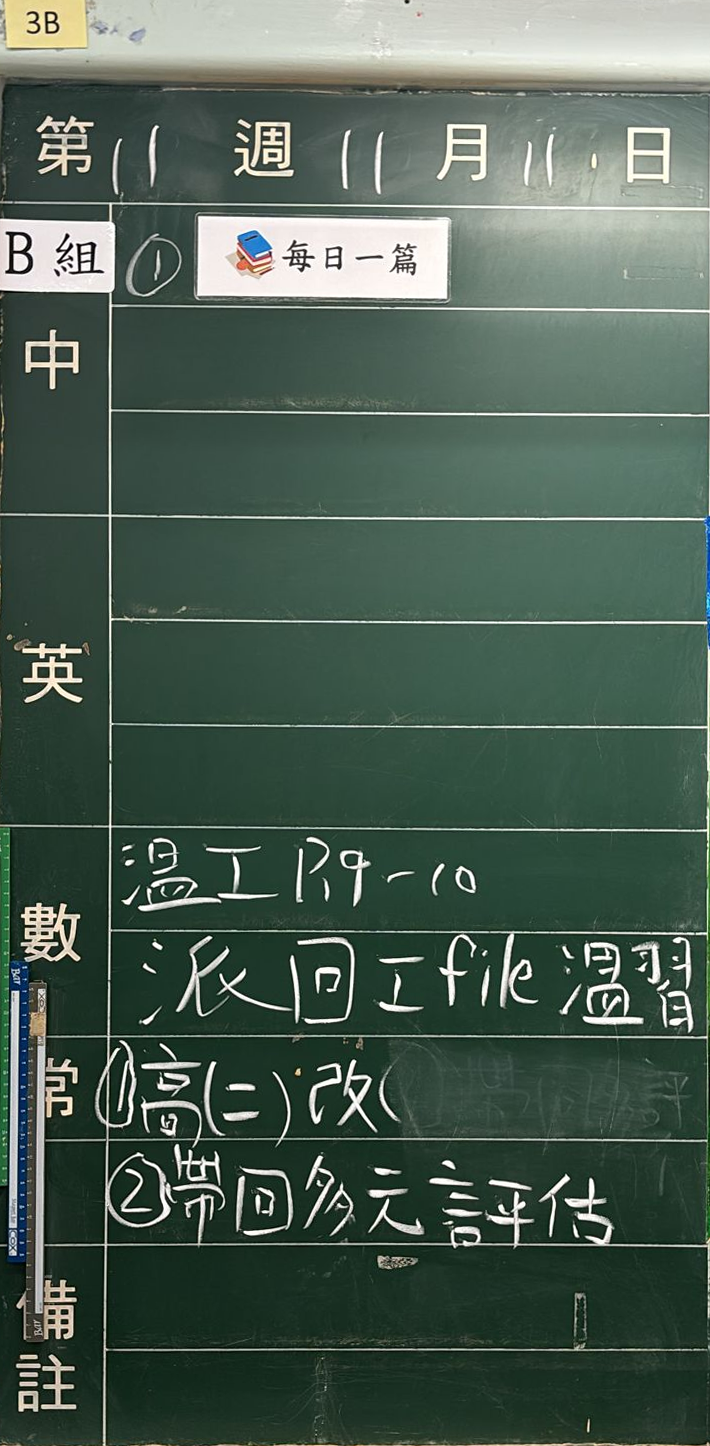 3B
第 11 週 11 月 11 日
B 組 ① 每日一篇
中
英
溫工 P.9-10
數
派回工 file 溫習
常 ①高(二)改(
②帶回多元評估
備
註